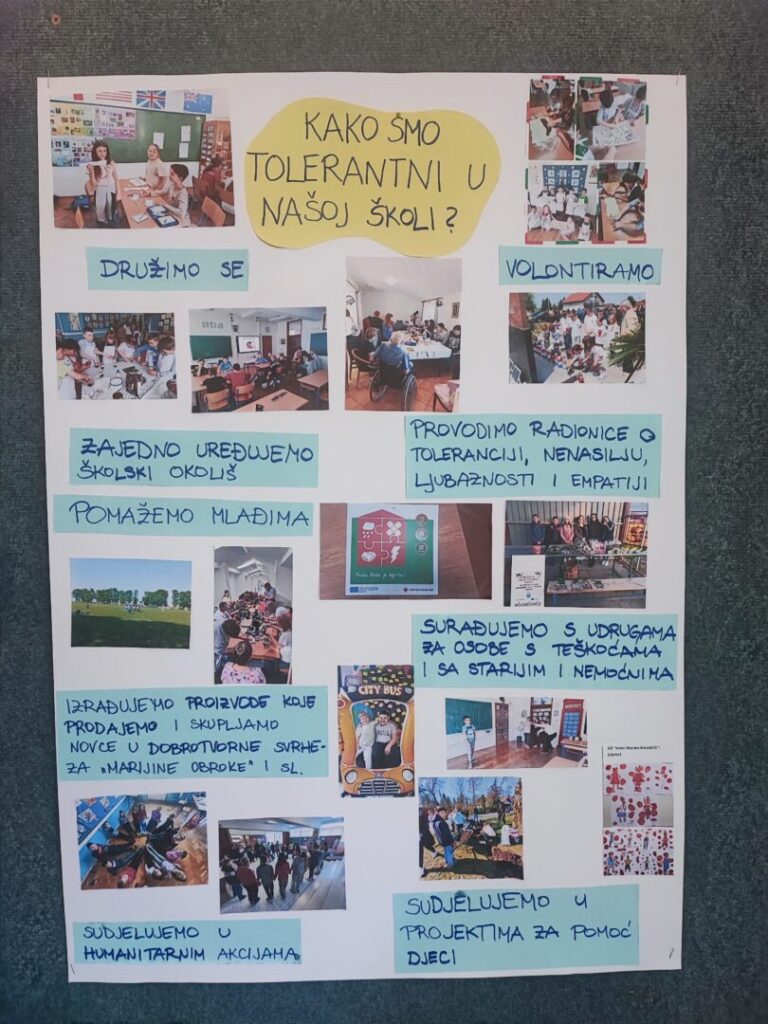 KAKO SMO
TOLERANTNI U
NAŠOJ ŠKOLI?
DRUŽIMO SE
VOLONTIRAMO
ZAJEDNO UREĐUJEMO
ŠKOLSKI OKOLIŠ
PROVODIMO RADIONICE O
TOLERANCIJI, NENASILJU,
LJUBAZNOSTI I EMPATIJI
POMAŽEMO MLAĐIMA
SURAĐUJEMO S UDRUGAMA
ZA OSOBE S TEŠKOĆAMA
I SA STARIJIM I NEMOĆNIMA
IZRAĐUJEMO PROIZVODE KOJE
PRODAJEMO I SKUPLJAMO
NOVCE U DOBROTVORNE SVRHE-
ZA "MARIJINE OBROKE" I SL.
CITY BUS
SUDJELUJEMO U
HUMANITARNIM AKCIJAMA
SUDJELUJEMO U
PROJEKTIMA ZA POMOĆ
DJECI